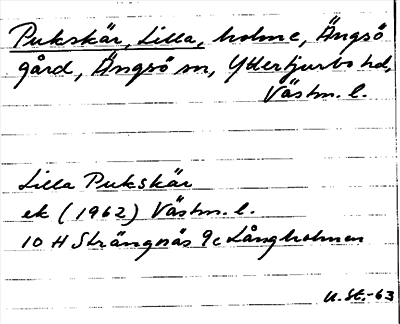 Pukskär, Lilla, holme, Ängsö
gård, Ängsö sn, Yttertjurbo hd,
Västm. l.
Lilla Pukskär
ek (1962) Västm. l.
10 H Strängnäs 9c Långholmen
U. St.-63